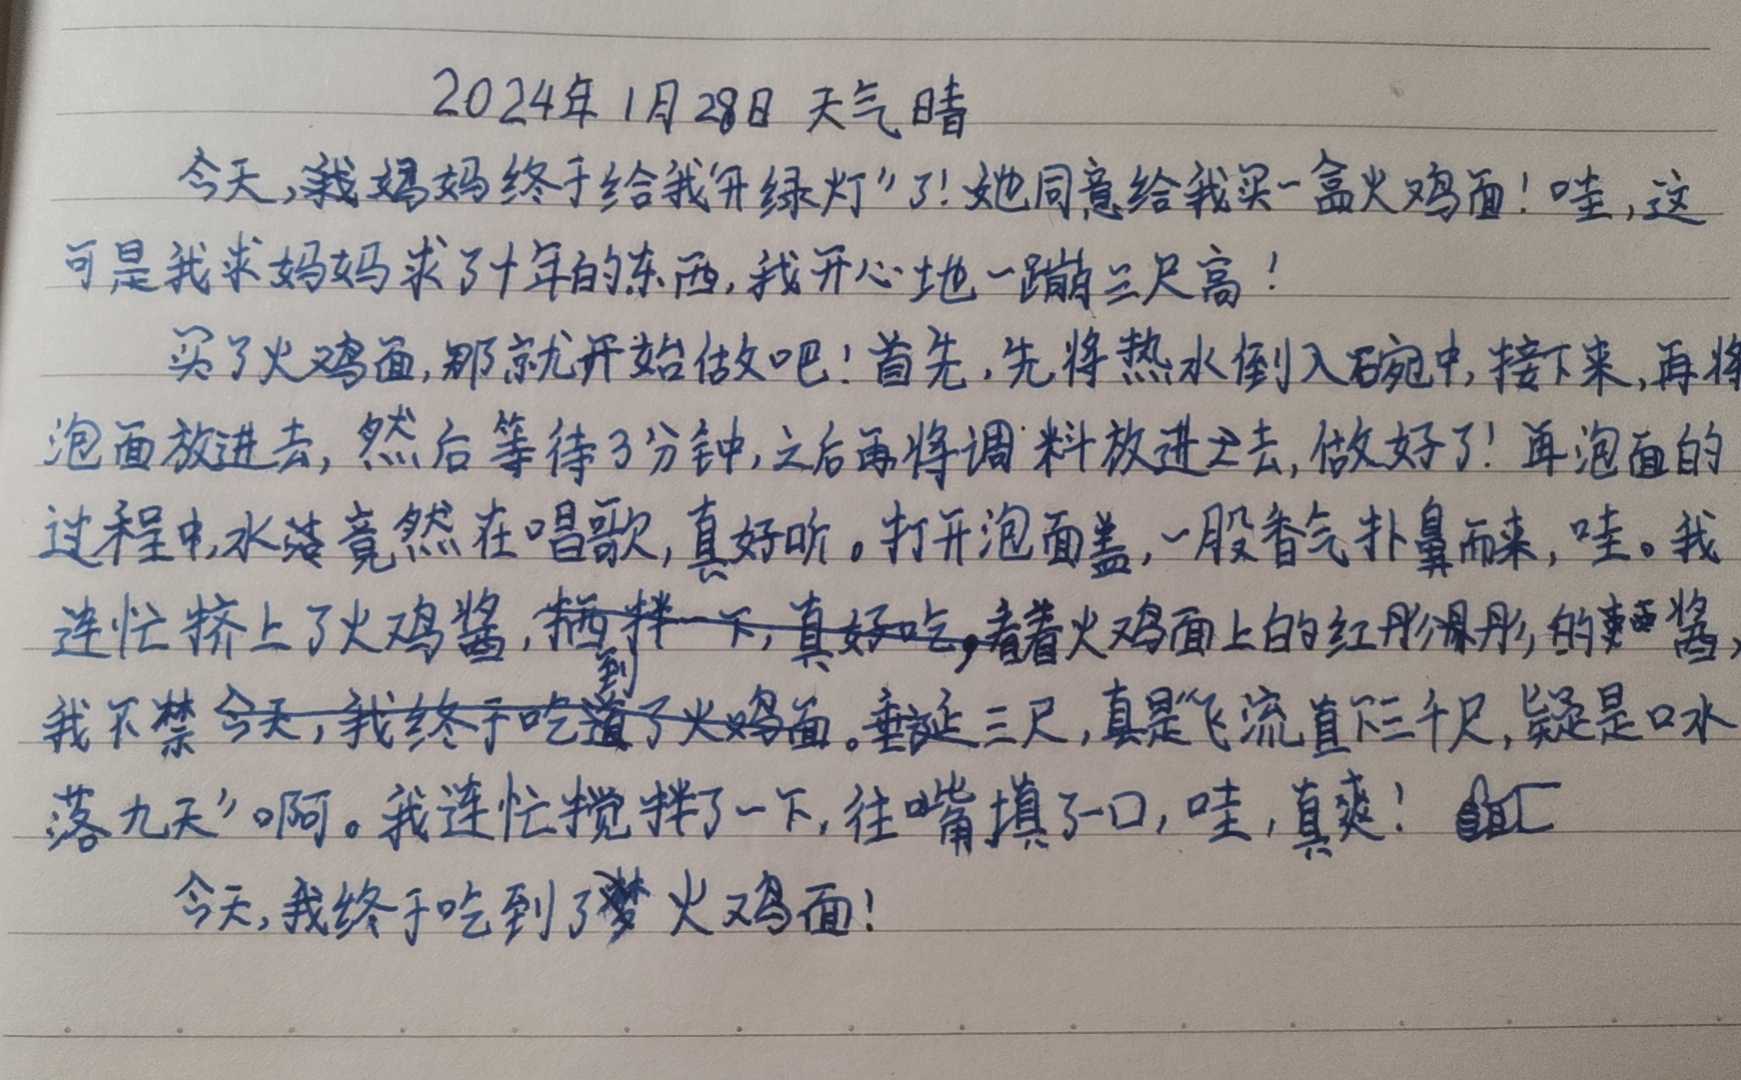 2024年1月28日 天气晴
今天,我妈妈终于给我“开绿灯”了!她同意给我买一盒火鸡面!哇,这
可是我求妈妈求了十年的东西,我开心地一蹦三尺高!
买了火鸡面,那就开始做吧!首先,先将热水倒入碗中,接下来,再将
泡面放进去,然后等待3分钟,之后再将调料放进去,做好了!再泡面的
过程中,水落竟然在唱歌,真好听。打开泡面盖,一股香气扑鼻而来,哇。我
连忙挤上了火鸡酱,看着火鸡面上的红彤彤的酱,
我不禁垂涎三尺,真是“飞流直下三千尺,疑是口水
落九天”啊。我连忙搅拌了一下,往嘴填了一口,哇,真爽!
今天,我终于吃到了火鸡面!